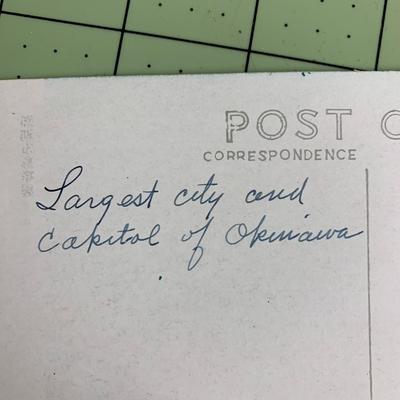 POST C
CORRESPONDENCE
Largest city and
Capitol of Okinawa